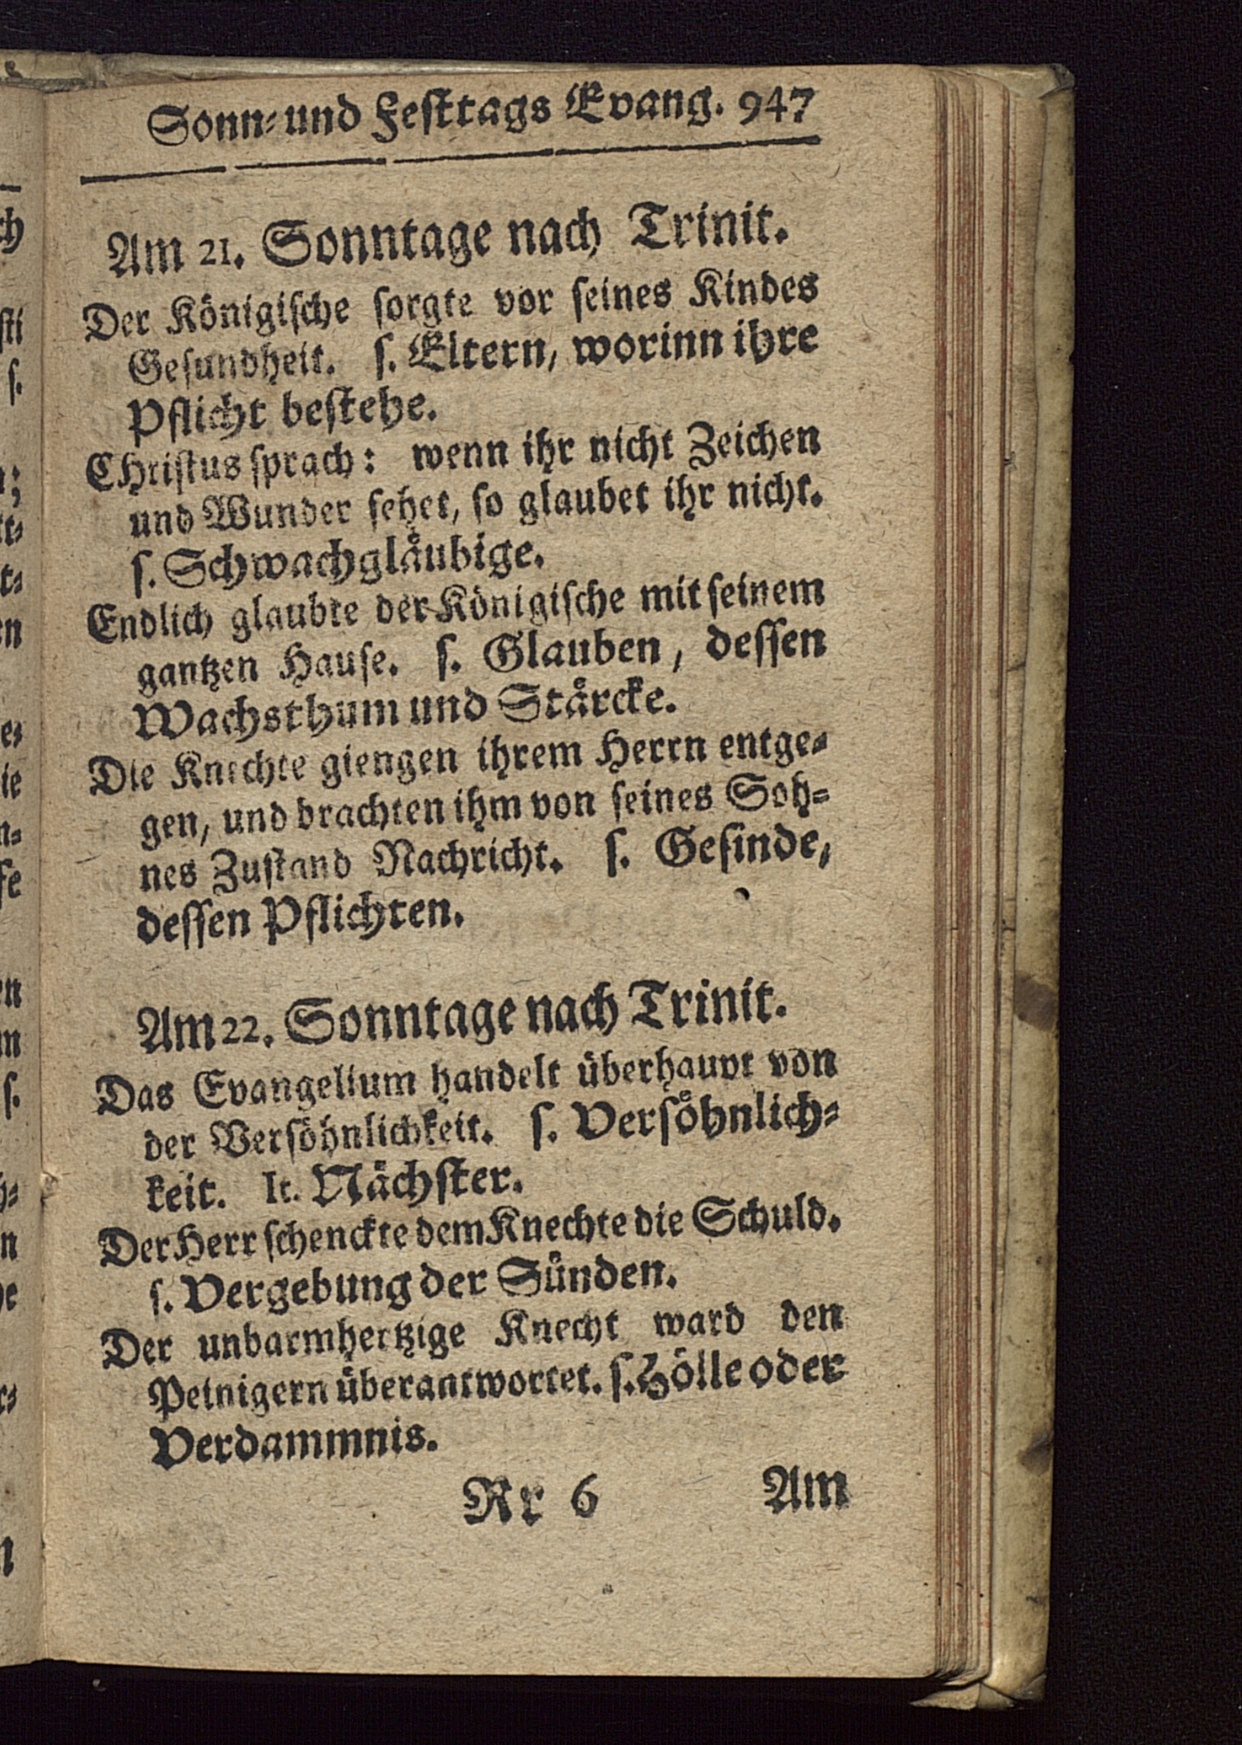 Sonn- und Festtags Evang. 947
Am 21. Sonntage nach Trinit.
Der Königische sorgte vor seines Kindes
Gesundheit. s. Eltern, worinn ihre
Pflicht bestehe.
CHristus sprach: wenn ihr nicht Zeichen
und Wunder sehet, so glaubet ihr nicht.
s. Schwachgläubige.
Endlich glaubte der Königische mit seinem
gantzen Hause. s. Glauben, dessen
Wachsthum und Stärcke.
Die Knechte giengen ihrem Herrn entge-
gen, und brachten ihm von seines Soh-
nes Zustand Nachricht. s. Gesinde,
dessen Pflichten.
Am 22. Sonntage nach Trinit.
Das Evangelium handelt überhaupt von
der Versöhnlichkeit. s. Versöhnlich-
keit. It. Nächster.
Der Herr schenckte dem Knechte die Schuld.
s. Vergebung der Sünden.
Der unbarmhertzige Knecht ward den
Peinigern überantwortet. s. Hölle oder
Verdammnis.
Rr 6 Am